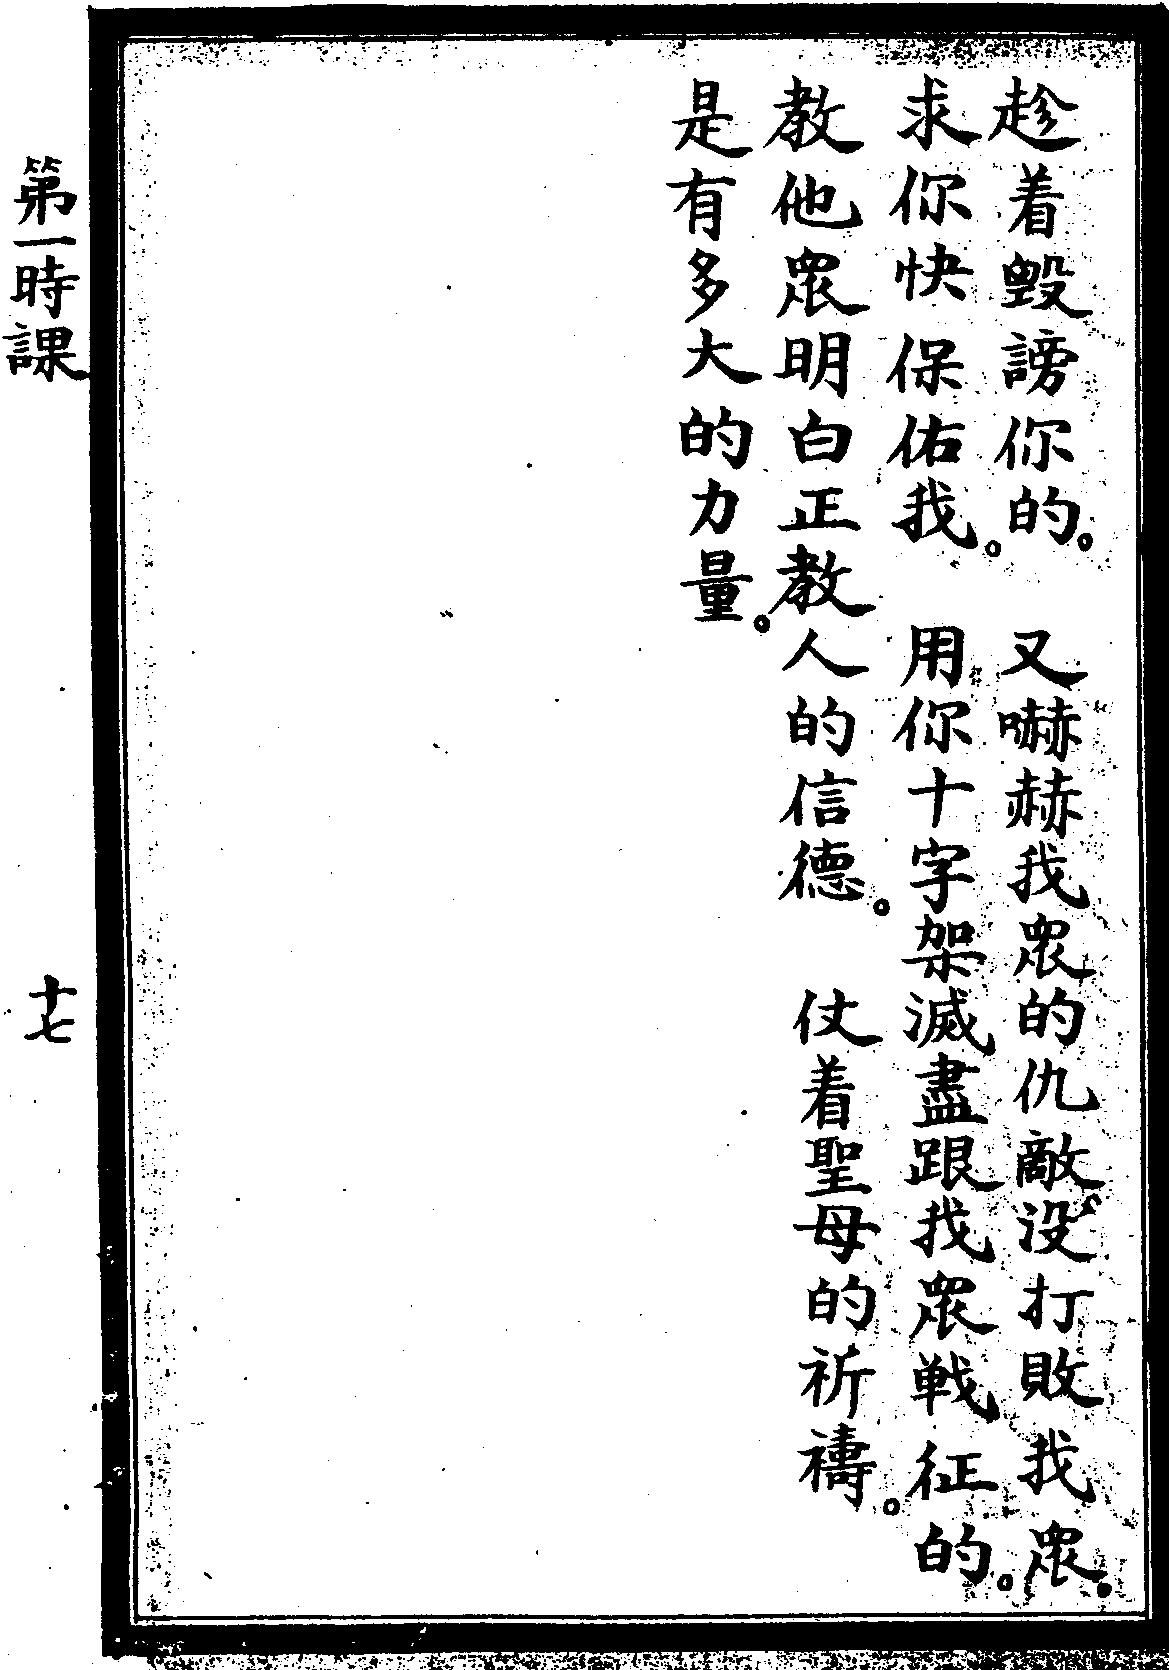 趁着毀謗你的。 又嚇赫我眾的仇敵没打敗我眾。
求你快保佑我。 用你十字架滅盡跟我眾戰征的。
教他眾明白正教人的信德。 仗着聖母的祈禱。
是有多大的力量。
第一時課
十七